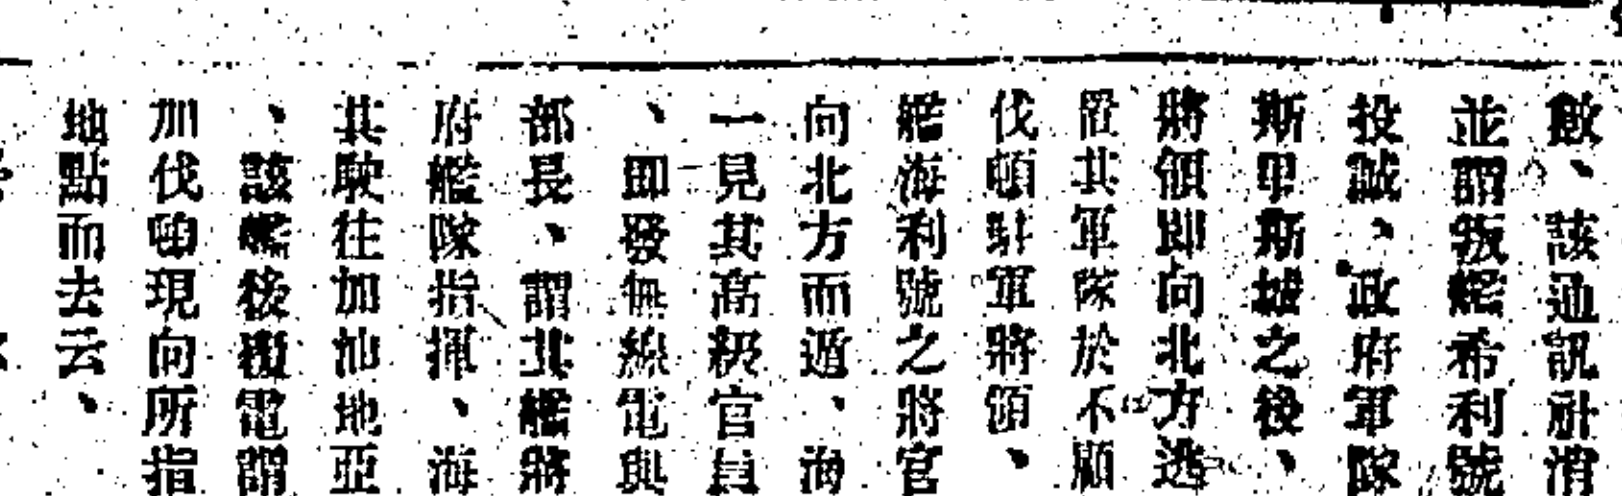 敵、該通訊社消
並謂叛艦希利號
投誠、政府軍隊
斯甲斯坡之後、
將領即向北方逃
置其軍隊於不顧
伐頓駐軍將領、
艦海利號之將官
向北方而遁、海
一見其高級官員
、即發無線電與
部長、謂其艦將
府艦隊指揮、海
其駛往加加地亞
、該艦後覆電謂
加伐頓現向所指
地點而去云、